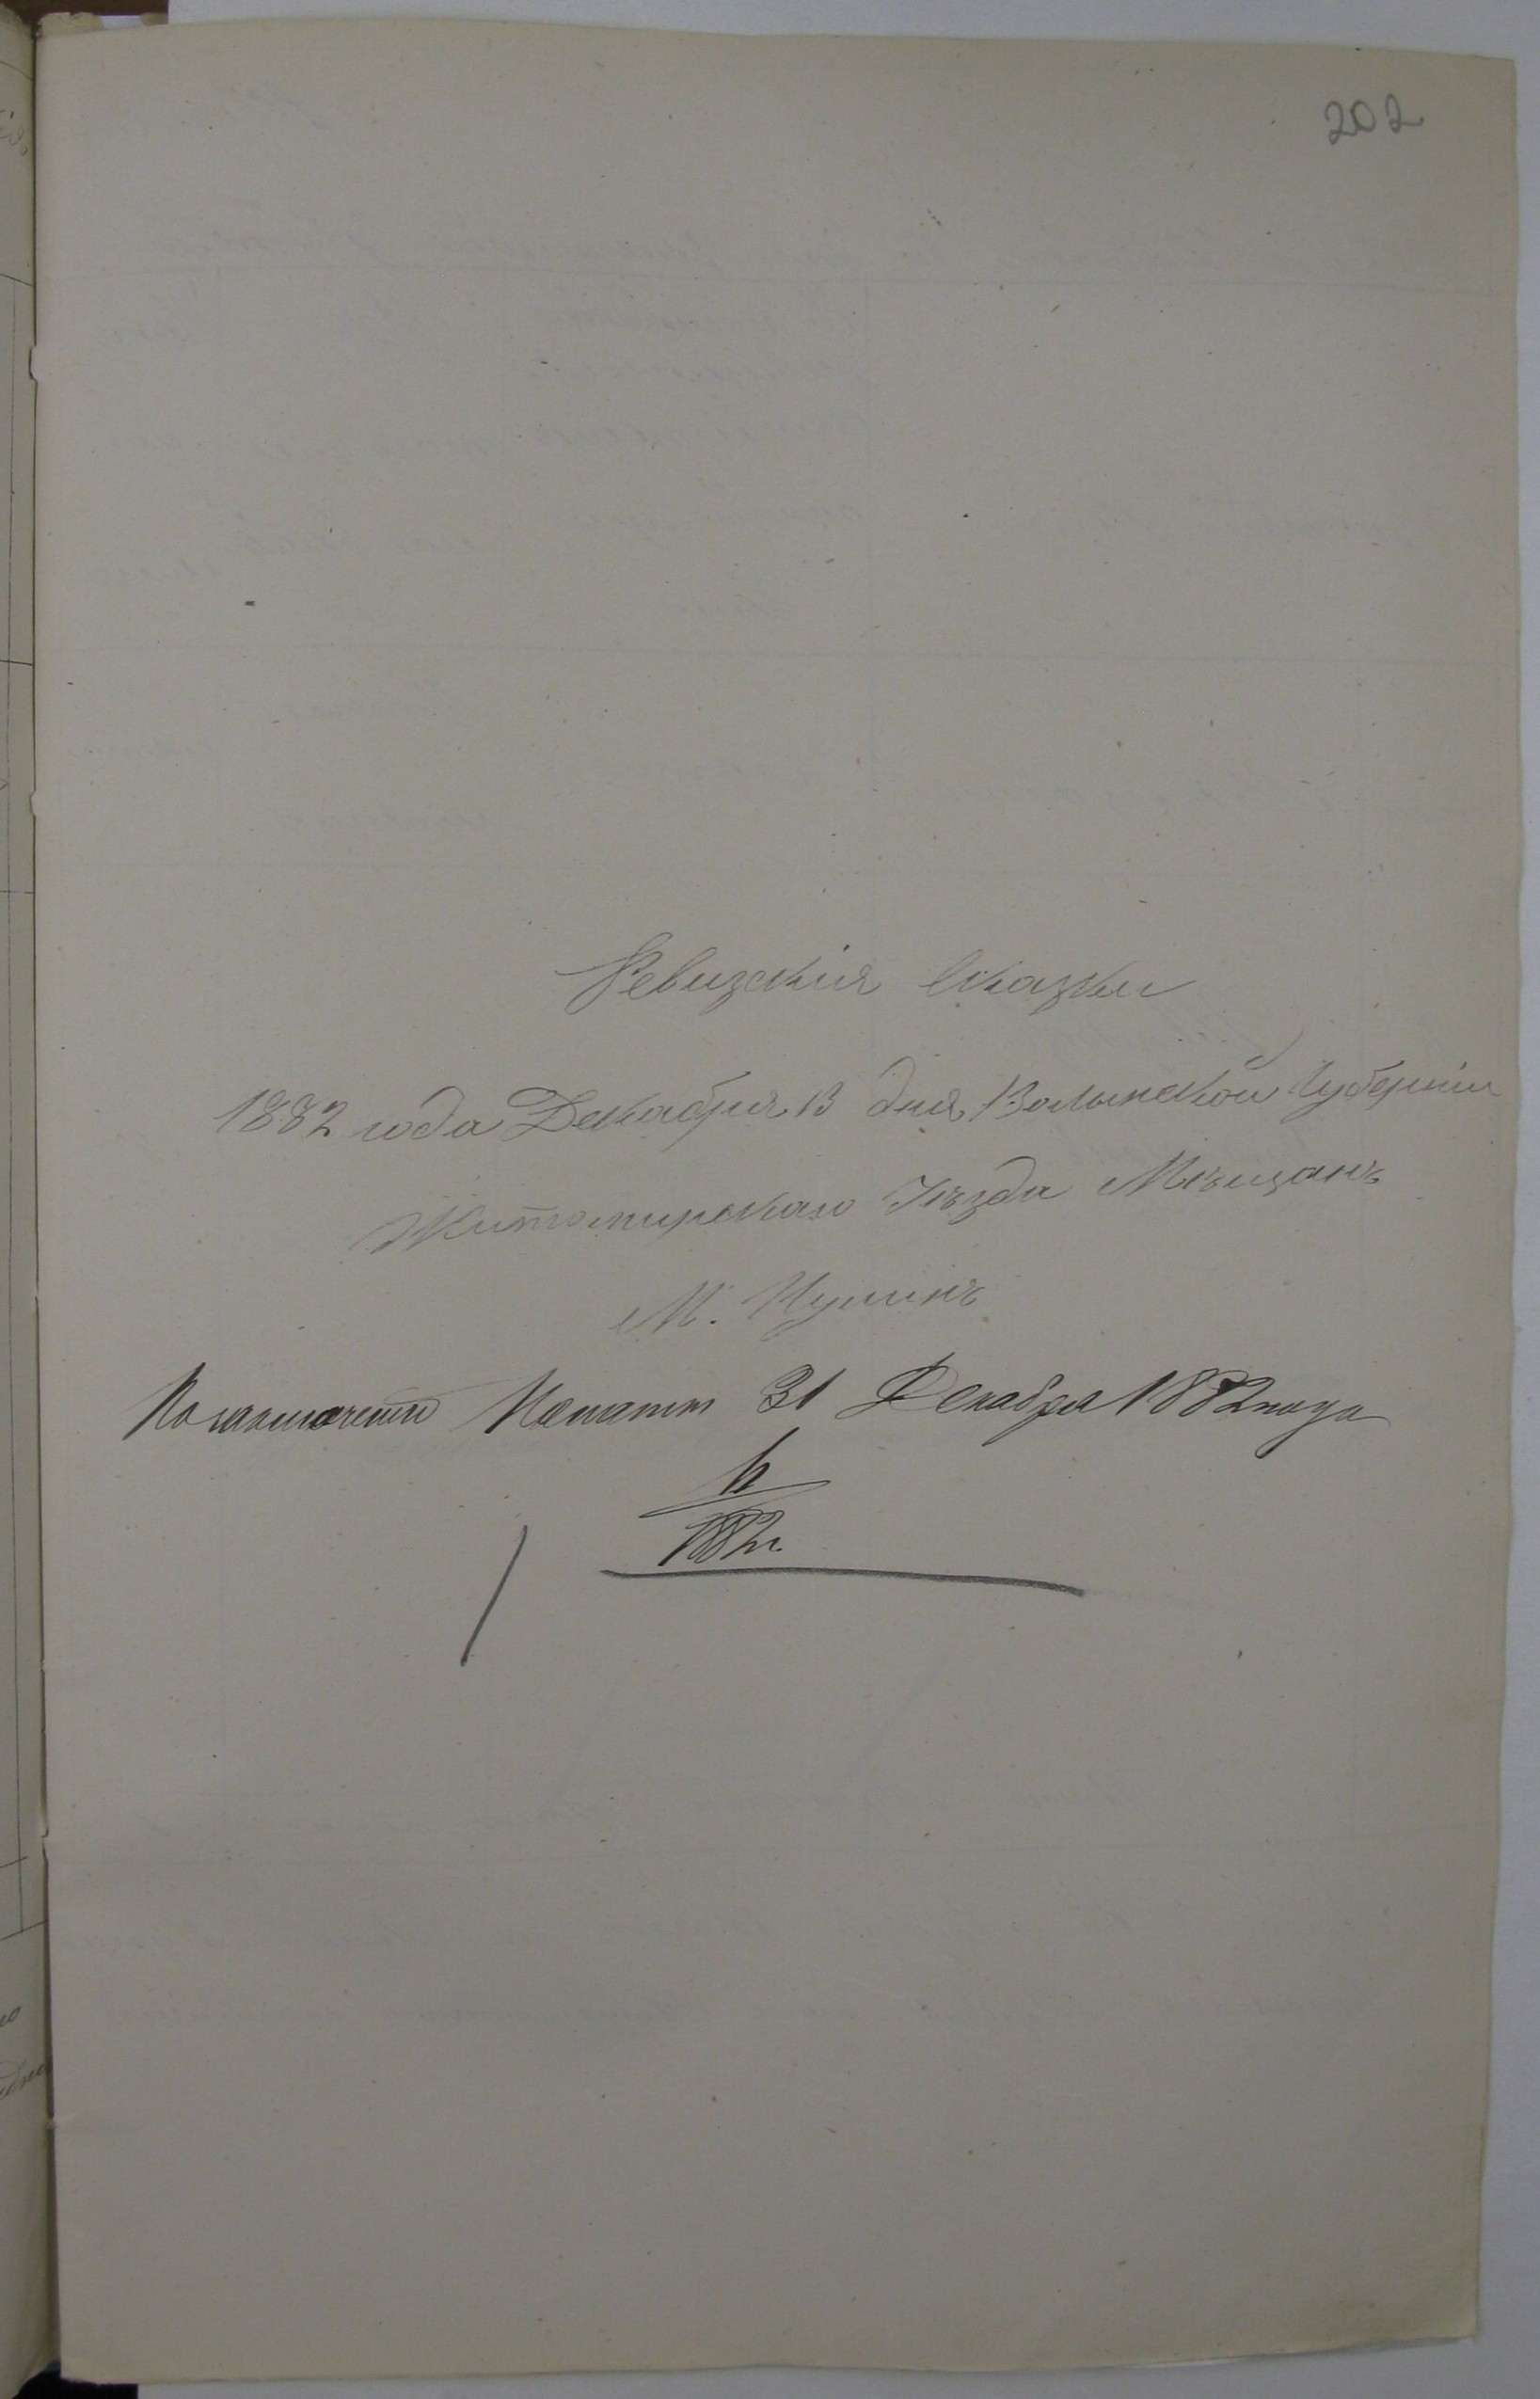 202
Ревизскія Сказки
1882 года Декабря 13 дня, Волынской Губерніи
Житомирскаго Уѣзда Мѣщанъ
М.
По заключенію Палаты 31 Декабря 1882 года
1882 г.